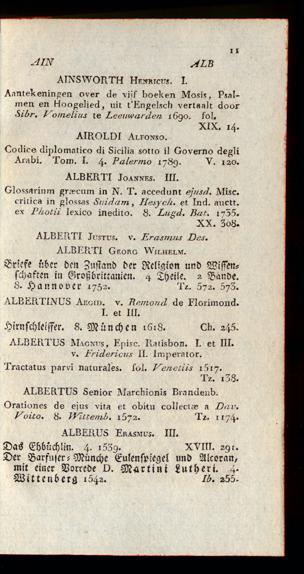 11
AIN ALB
AINSWORTH Henricus. I.
Aantekeningen over de vijf boeken Mosis, Psal-
men en Hoogelied, uit t'Engelsch vertaalt door
Sibr. Vomelius te Leeuwarden 1690. fol.
XIX. 14.
AIROLDI Alfonso.
Codice diplomatico di Sicilia sotto il Governo degli
Arabi. Tom. I. 4. Palermo 1789. V. 120.
ALBERTI Joannes. III.
Glossarium græcum in N. T. accedunt ejusd. Misc.
critica in glossas Suidam, Hesych. et Ind. auctt.
ex Photii lexico inedito. 8. Lugd. Bat. 1735.
XX. 308.
ALBERTI Justus. v. Erasmus Des.
ALBERTI Georg Wilhelm.
Briefe über den Zustand der Religion und Wissen-
schaften in Großbrittanien. 4 Theile. 2 Bände.
8. Hannover 1752. Tz. 572. 573.
ALBERTINUS Aegid. v. Remond de Florimond.
I. et III.
Hirnschleiffer. 8. München 1618. Ch. 245.
ALBERTUS Magnus, Episc. Ratisbon. I. et III.
v. Fridericus II. Imperator.
Tractatus parvi naturales. fol. Venetiis 1517.
Tz. 138.
ALBERTUS Senior Marchionis Brandenb.
Orationes de ejus vita et obitu collectæ a Dav.
Voito. 8. Wittemb. 1572. Tz. 1174.
ALBERUS Erasmus. III.
Das Ehbüchlin. 4. 1539. XVIII. 291.
Der Barfuser-Münche Eulenspiegel und Alcoran,
mit einer Vorrede D. Martini Lutheri. 4.
Wittenberg 1542. Ib. 255.